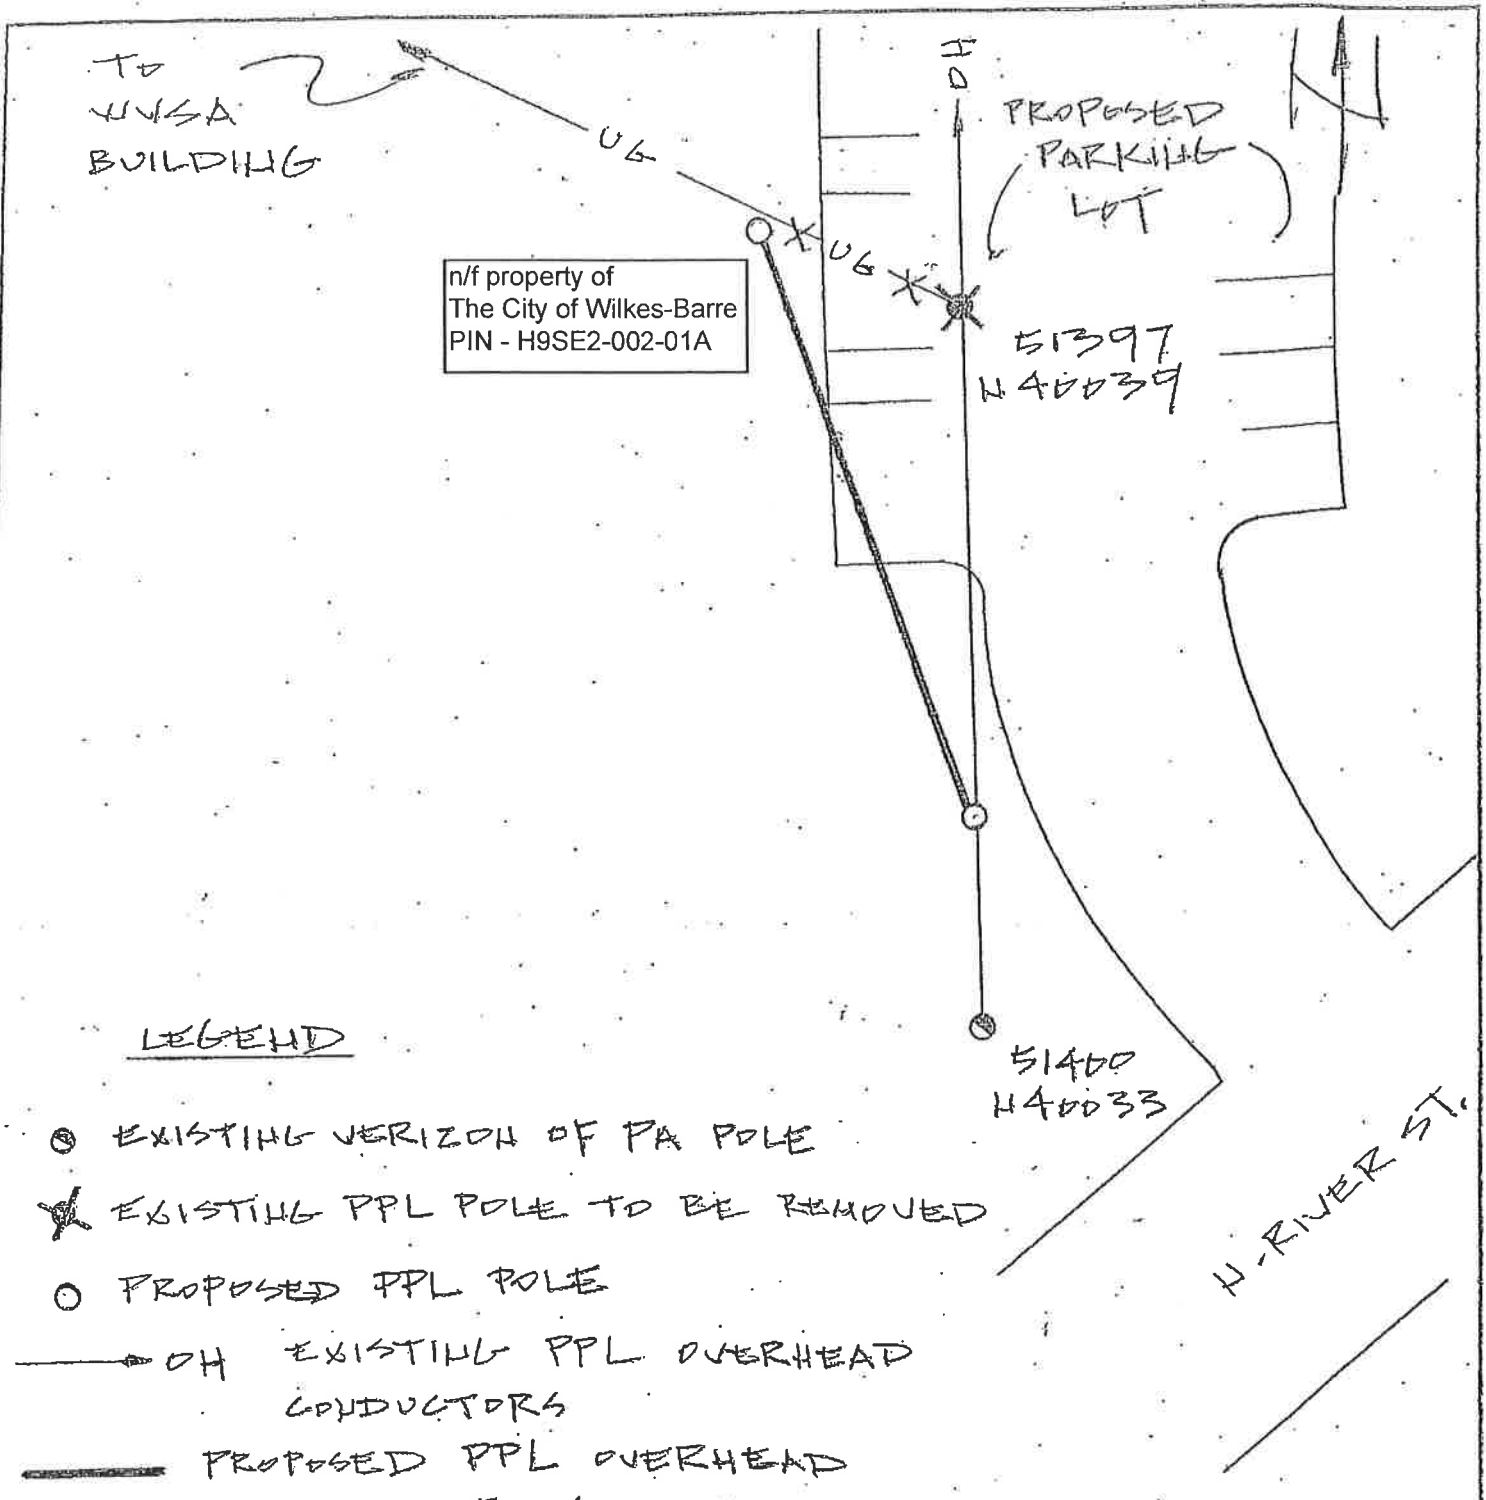 TO
WVSA
BUILDING
UG
OH
PROPOSED
PARKING
LOT
N
UG
n/f property of
The City of Wilkes-Barre
PIN - H9SE2-002-01A
51397
N40039
51400
N40033
N. RIVER ST.
LEGEND
EXISTING VERIZON OF PA POLE
EXISTING PPL POLE TO BE REMOVED
PROPOSED PPL POLE
OH EXISTING PPL OVERHEAD
CONDUCTORS
PROPOSED PPL OVERHEAD